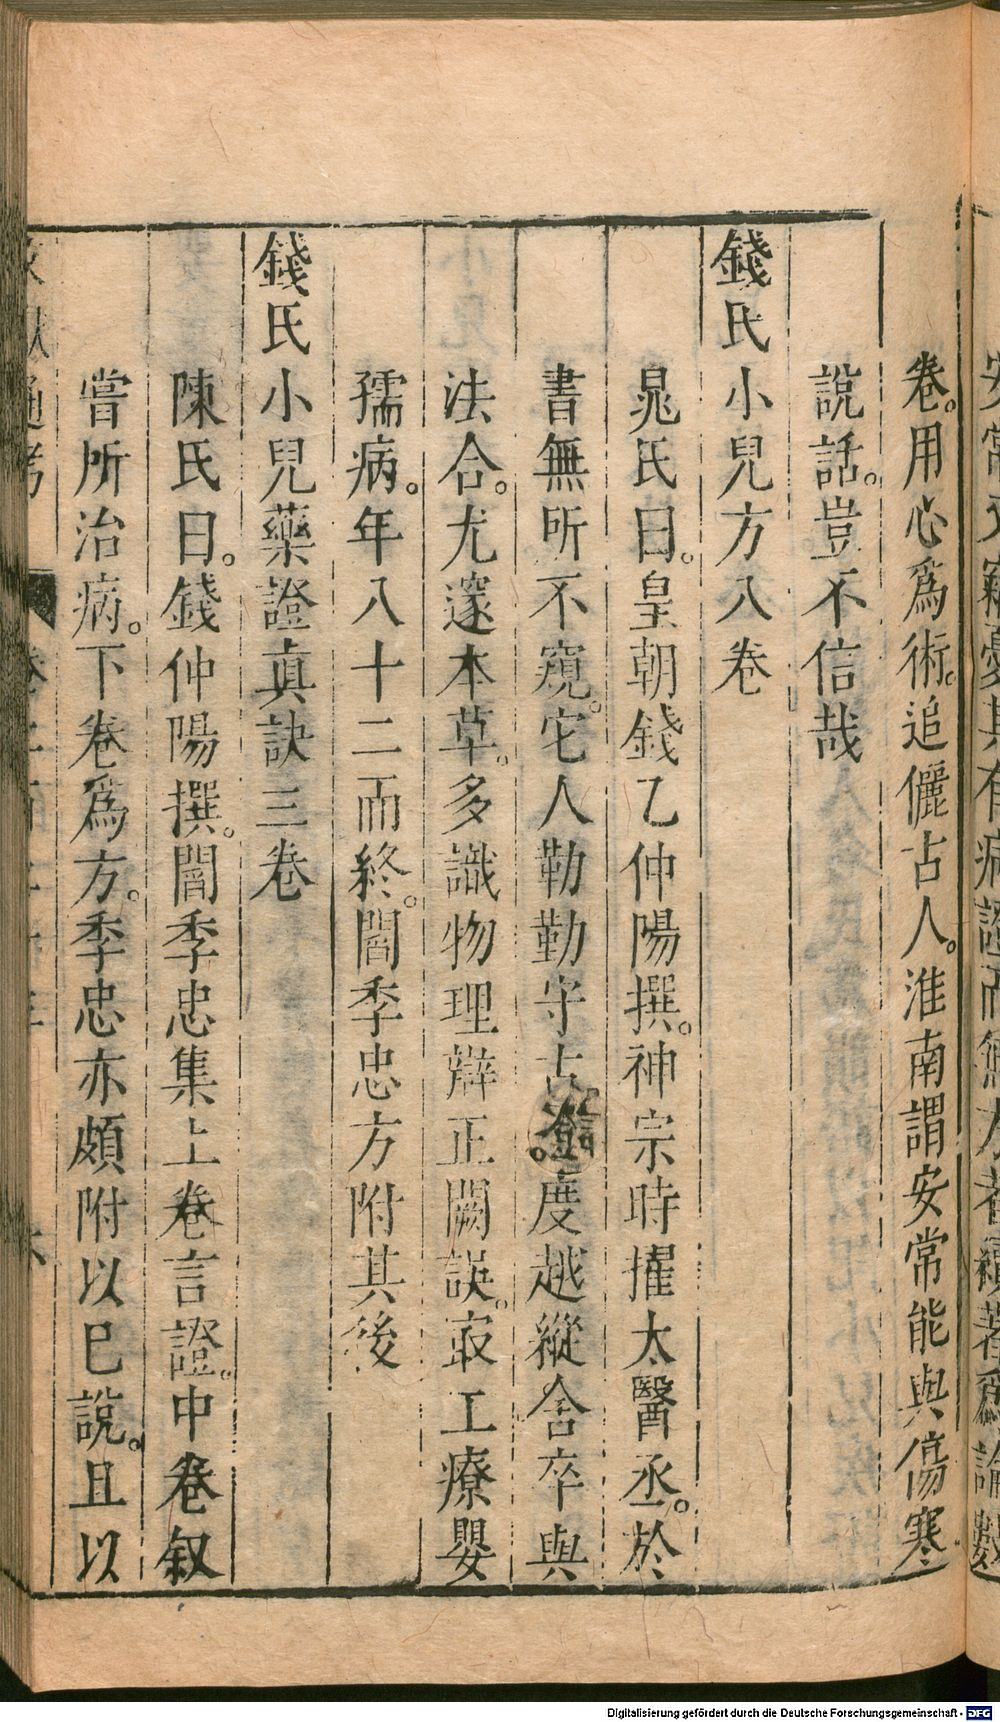 卷。用心爲術。追儷古人。淮南謂安常能與傷寒
說話。豈不信哉
錢氏小兒方八卷
晁氏曰。皇朝錢乙仲陽撰。神宗時擢太醫丞。於
書無所不窺。它人勒勤守古 度越縱舍卒與
法合。尤邃本草。多識物理辯正闕誤。㝡工療嬰
孺病。年八十二而終。閻季忠方附其後
錢氏小兒藥證真訣三卷
陳氏曰。錢仲陽撰。閻季忠集上卷言證。中卷叙
嘗所治病。下卷爲方。季忠亦頗附以已說。且以
Digitalisierung gefördert durch die Deutsche Forschungsgemeinschaft - DFG